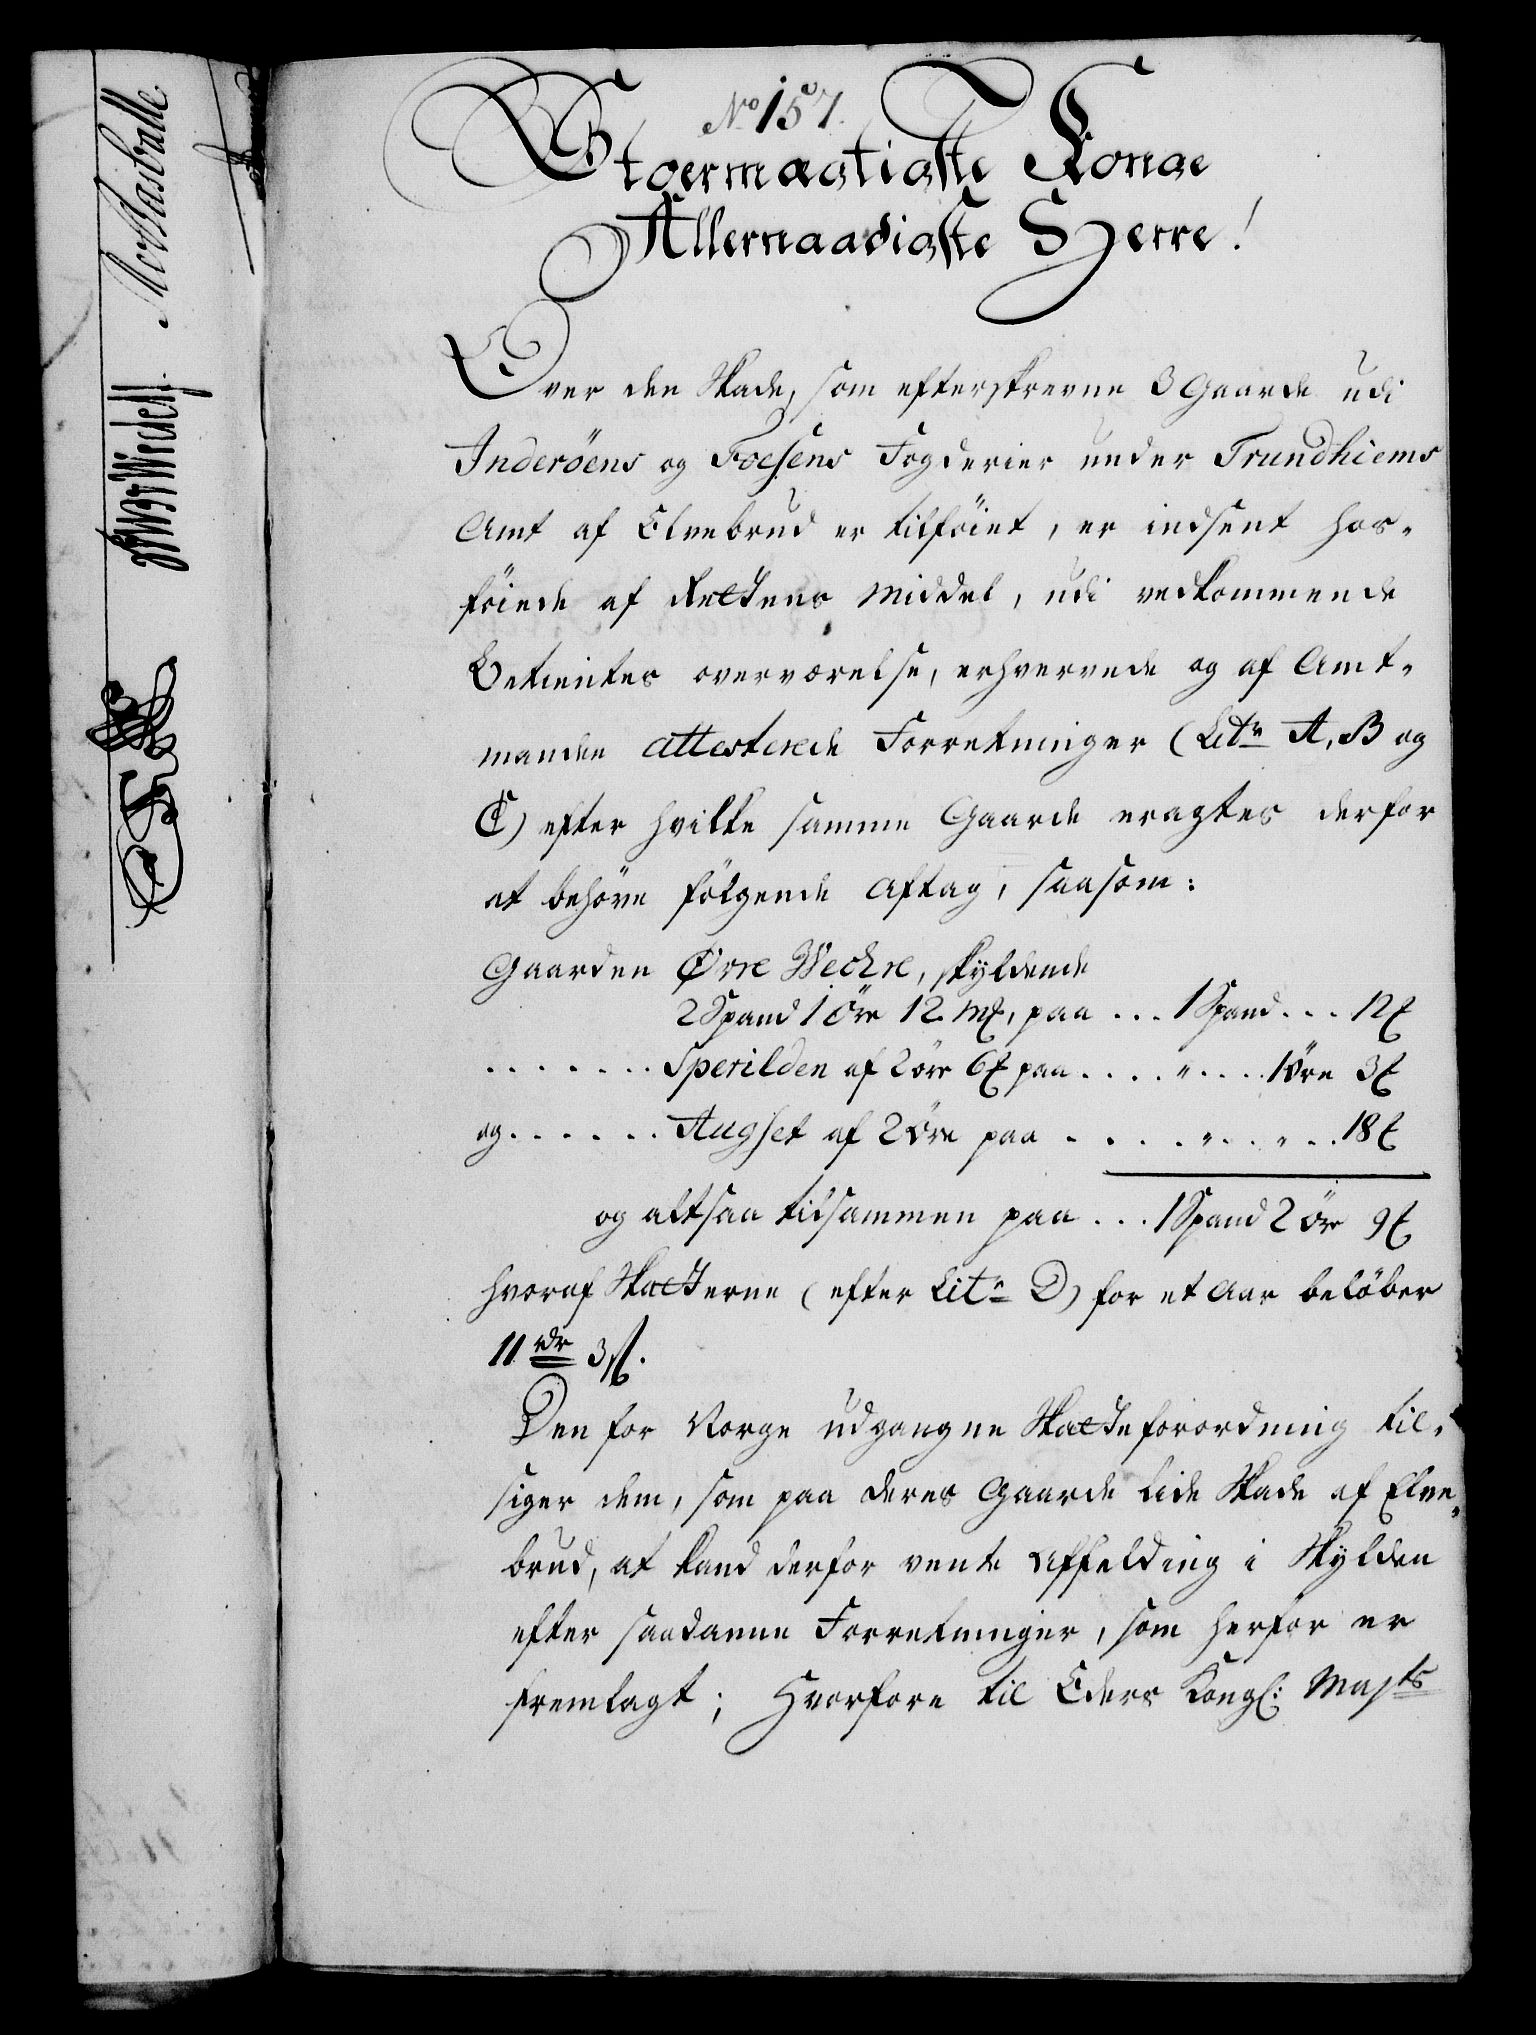 No 157.
Stoermægtigste Konge
Allernaadigste Herre!
Over den Skade, som efterskrevne 3 Gaarde udi
Inderöens og Foesens Fogderier under Trundhiems
Amt af Elvebrud er tilföiet, er indsent hos-
föiede af Rettens Middel, udi vedkommende
Betientes overværelse, erhvervede og af Amt-
manden attesterede Forretninger (Litr A, B og
C) efter hvilke samme Gaarde eragtes derfor
at behöve fölgende Aftag, saasom:
Gaarden Övre Weckre, skyldende
2 Spand 1 öre 12 mƸ, paa ... 1 Spand ... 12 Ƹ
....... Sperilden af 2 öre 6 Ƹ paa .... " .... 1 Öre 3 Ƹ
og ...... Augset af 2 Öre paa ..... " .. " .. 18 Ƹ
og altsaa tilsammen paa ... 1 Spand 2 öre 9 Ƹ
hvoraf Skatterne (efter Litr D) for et Aar belöber
11 rdr 3 ß.
Den for Norge udgangne Skatteforordning til-
siger dem, som paa deres Gaarde lide Skade af Elve-
brud, at kand derfor vente Affelding i Skylden
efter saadanne Forretninger, som herfor er
fremlagt; Hvorfore til Eders Kongl: Majts